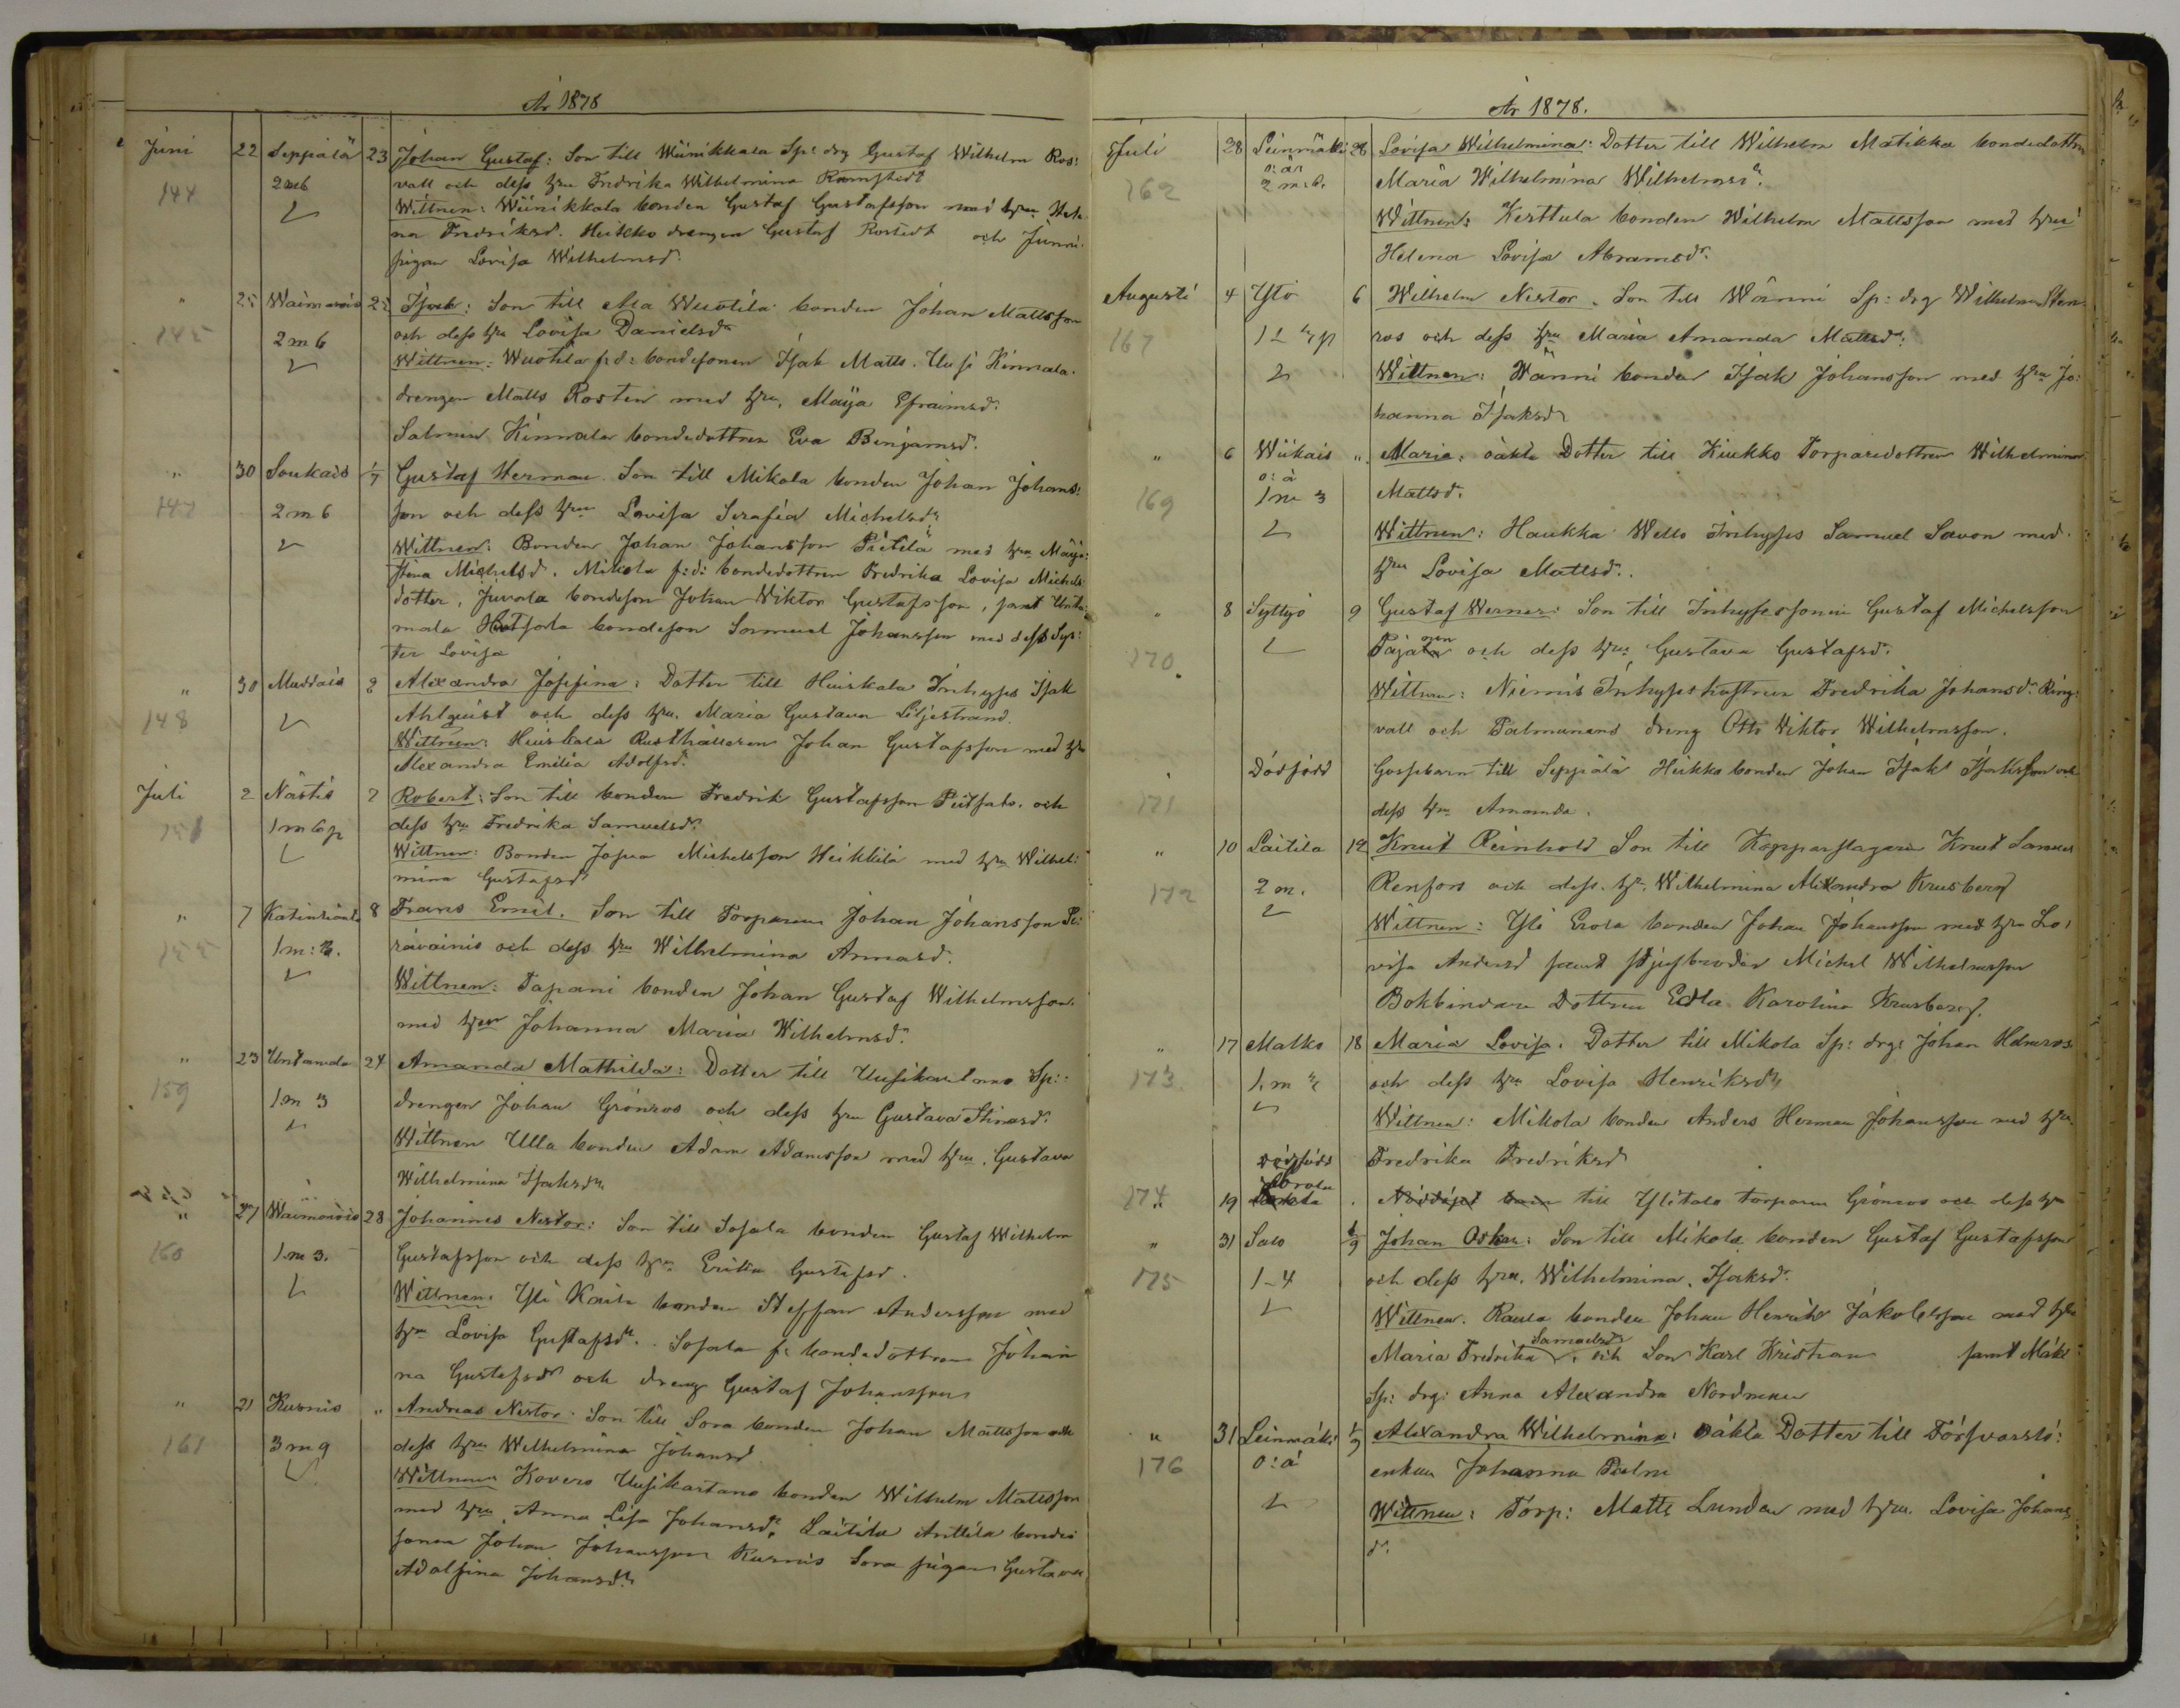 År 1878
Juni 22 Seppälä 23 Johan Gustaf: Son till Wiinikkala Sp: drg Gustaf Wilhelm Ros:
144 2 m 6 vall och dess hru Fredrika Wilhelmina Ramstedt
Wittnen: Wiinikkala bonden Gustaf Gustafsson med hru Hele
na Fredriksd. Heikko drengen Gustaf Rostedt och Junni
pigan Lovisa Wilhelmsd.
" 25 Waimarois 25 Isak: Son till Ala Wuotila bonden Johan Mattsson
145 2 m 6 och dess hru Lovisa Danielsd
Wittnen: Wuotila f: d: bondesonen Isak Matts. Uusi Kinnala
drengen Matts Rosten med hru, Maija Efraimsd.
Salmen Kinnala bondedottren Eva Benjamsd.
" 30 Soukais 1/7 Gustaf Herman. Son till Mikola bonden Johan Johans:
147 2 m 6 son och dess hru Lovisa Serafia Michelsdr
Wittnen: Bonden Johan Johansson Pietilä med hru Maija
Stina Michelsd. Mikola f: d: bondedottren Fredrika Lovisa Michels
dotter, Juvola bondeson Johan Wiktor Gustafsson, samt Unta
mala Hotsola bondeson Samuel Johansson med dess Sys:
ter Lovisa
" 30 Mustais 2 Alexandra Josefina: Dotter till Heiskala Inhyses Isak
148 Ahlquist och dess hru. Maria Gustava Liljestrand.
Wittnen: Heiskala Rusthållaren Johan Gustafsson med hru
Alexandra Emilia Adolfsd.
Juli 2 Nästis 2 Robert: Son till bonden Fredrik Gustafsson och
151 1 m 6 p dess hru Fredrika Samuelsd.
Wittnen: Bonden Josua Michelsson Heikkilä med hru Wilhel:
mina Gustafsd
" 7 8 Frans Emil. Son till Torparen Johan Johansson
155 1 m: 3. och dess hru Wilhelmina Annasd.
Wittnen: Tapani bonden Johan Gustaf Wilhelmsson
med hru Johanna Maria Wilhelmsd.
" 23 Untamala 24 Amanda Mathilda: Dotter till Uusikartano Sp:
159 1 m 3 drengen Johan Grönroos och dess hru Gustava Stinasd.
Wittnen Ulla bonden Adam Adamsson med hru, Gustava
Wilhelmina Isaksdr
" 27 Waimarois 28 Johannes Nestor: Son till Sofala bonden Gustaf Wilhelm
160 1 m 3. Gustafsson och dess hru Erika Gustafsd.
Wittnen: Yli Kaila bonden Steffan Andersson med
hru Lovisa Gustafsdr. Sofala f: bondedottren Johan
na Gustafsdr och dreng Gustaf Johansson
" 21 Kusnis " Andreas Nestor. Son till Sora bonden Johan Mattsson och
161 3 m 9 dess hru Wilhelmina Johansd.
Wittnen Kovero Uusikartano bonden Wilhelm Mattsson
med hru Anna Lisa Johansdr. Laitila Anttila bonde
sonen Johan Johansson Kusnis Sora pigan Gustava
Adolfina Johansdr
År 1878.
Juli 28 Leinmäki 28 Lovisa Wilhelmina: Dotter till Wilhelm Matikka bondedottren
162 2 m. 6. Maria Wilhelmina Wilhelmsdr.
Wittnen: Kerttula bonden Wilhelm Mattsson med hru
Helena Lovisa Abramsdr.
Augusti 4 Ytö 6 Wilhelm Nestor. Son till Wänni Sp: drg Wilhelm Sten
167 ros och dess hru Maria Amanda Mattsdr.
Wittnen: Wänni bonden Isak Johansson med hru Jo:
hanna Isaksdr
" 6 Wiikais " Maria: oäkta Dotter till Kiukko Torparedottren Wilhelmina
169 o: ä 1 m 3 Mattsd.
Wittnen: Haukka Wello Inhyses Samuel Savon med
hru Lovisa Mattsd.
" 8 Syttyö 9 Gustaf Werner: Son till Inhysessonen Gustaf Michelsson
170. och dess hru Gustava Gustafsd.
Wittnen: Niemis Inhyseshustrun Fredrika Johansdr. Ring:
vall och Palmunens dreng Otto Wiktor Wilhelmsson.
Dödfödd Gossebarn till Seppälä Heikko bonden Johan Isak Isaksson och
171 dess hru Amanda.
" 10 Laitila 12 Knut Reinhold Son till Kopparslagaren Knut Samuel
172 2 m. Renfors och dess hr. Wilhelmina Alexandra Krusberg
Wittnen: Yli Erola bonden Johan Johansson med hru Lo:
visa Andersd samt styfbroder Michel Wilhelmsson
Bokbindare Dottren Edla Karolina Krusberg.
" 17 Malko 18 Maria Lovisa. Dotter till Mikola Sp: drg: Johan Holmroos
173 och dess hru Lovisa Henriksdr
Wittnen: Mikola bonden Anders Herman Johansson med hru
Dödfödd Fredrika Fredriksd
174 19 till Ylitalo torparen Grönroos och dess hru
" 31 Salo 1/9 Johan Oskar: Son till Mikola bonden Gustaf Gustafsson
175 1-4 och dess hru. Wilhelmina. Isaksd.
Wittnen. Raula bonden Johan Henrik Jakobsson med hru
Maria Fredrika Samuelsdr. och Son Karl Kristian samt Mäki
Sp: drg: Anna Alexandra Nordman
" 31 Leinmäki 1/9 Alexandra Wilhelmina: oäkta Dotter till Försvarslö:
176 o: ä enkan Johanna Palm
Wittnen: Torp: Matts Lundén med hru. Lovisa Johans
dr.